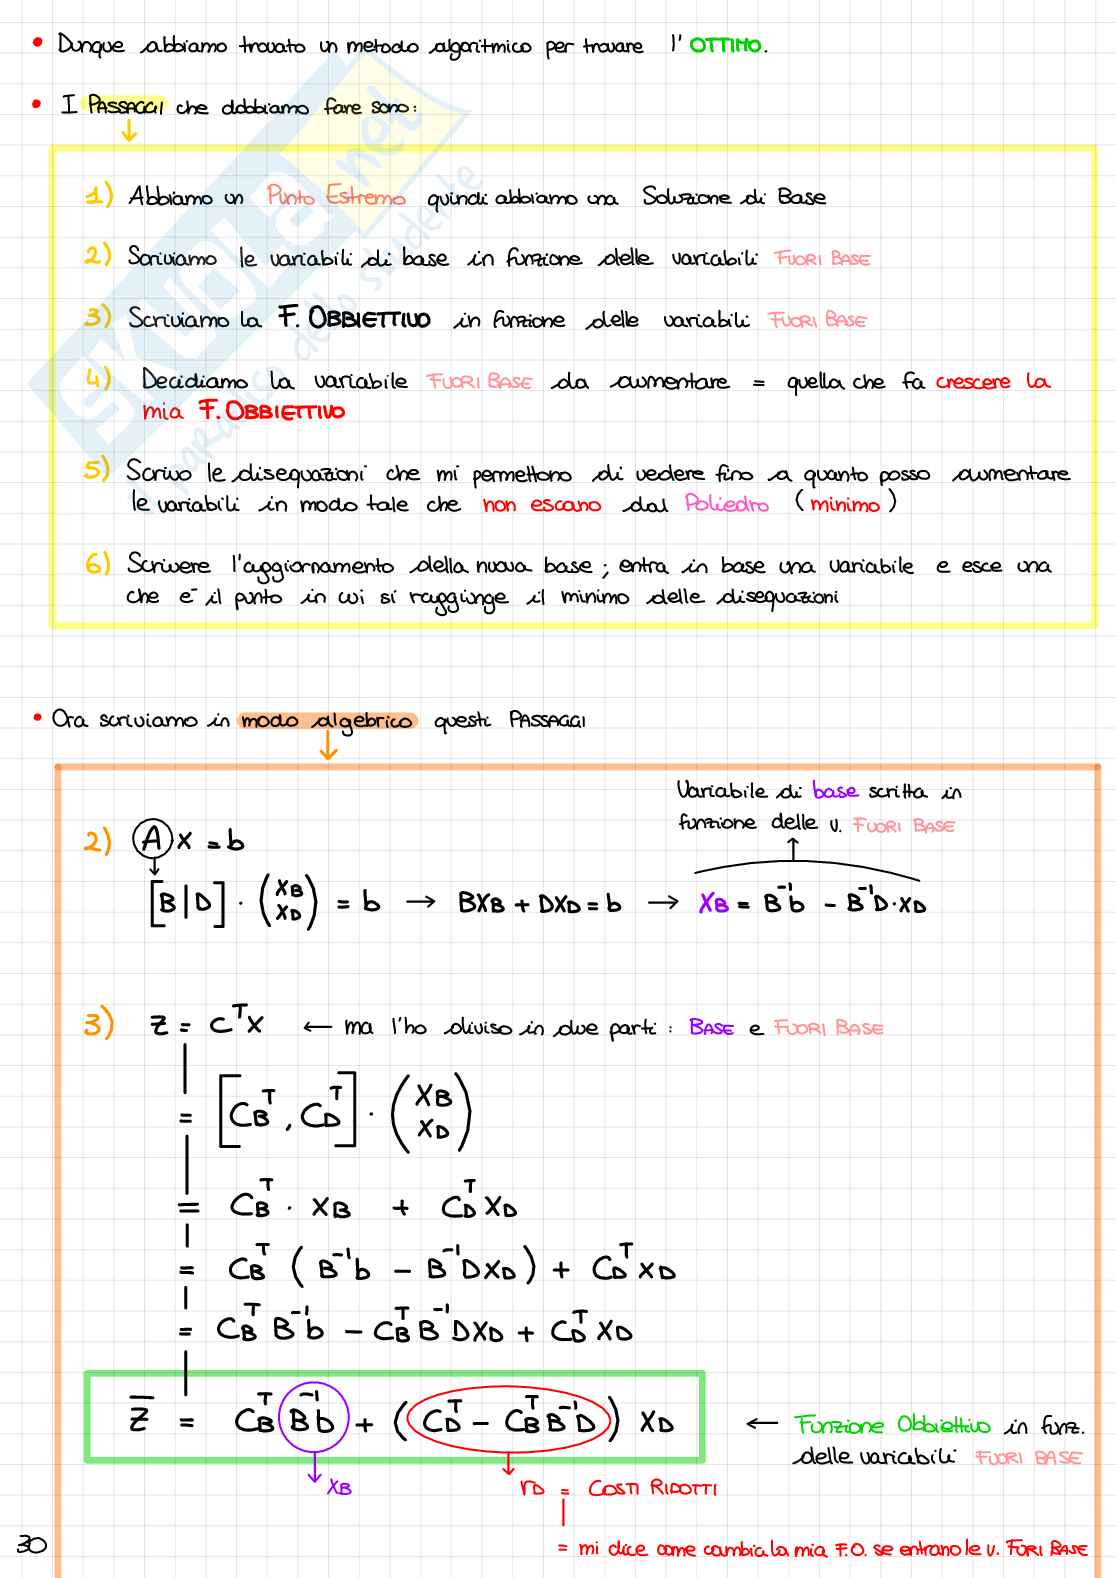 • Dunque abbiamo trovato un metodo algoritmico per trovare l'OTTIMO.
• I PASSAGGI che dobbiamo fare sono:
1) Abbiamo un Punto Estremo quindi abbiamo una Soluzione di Base
2) Scriviamo le variabili di base in funzione delle variabili FUORI BASE
3) Scriviamo la F. OBBIETTIVO in funzione delle variabili FUORI BASE
4) Decidiamo la variabile FUORI BASE da aumentare = quella che fa crescere la
mia F. OBBIETTIVO
5) Scrivo le disequazioni che mi permettono di vedere fino a quanto posso aumentare
le variabili in modo tale che non escano dal Poliedro (minimo)
6) Scrivere l'aggiornamento della nuova base; entra in base una variabile e esce una
che è il punto in cui si raggiunge il minimo delle disequazioni
• Ora scriviamo in modo algebrico questi PASSAGGI
Variabile di base scritta in
funzione delle v. FUORI BASE
2) A x = b
[B | D] · (XB XD) = b → BXB + DXD = b → XB = B⁻¹b - B⁻¹D·XD
3) z = CᵀX ← ma l'ho diviso in due parti: BASE e FUORI BASE
= [CBᵀ, CDᵀ] · (XB XD)
= CBᵀ · XB + CDᵀ XD
= CBᵀ (B⁻¹b - B⁻¹DXD) + CDᵀ XD
= CBᵀ B⁻¹b - CBᵀ B⁻¹DXD + CDᵀ XD
z̄ = CBᵀ B⁻¹b + (CDᵀ - CBᵀB⁻¹D) XD ← Funzione Obbiettivo in funz.
delle variabili FUORI BASE
XB
rD = COSTI RIDOTTI
= mi dice come cambia la mia F.O. se entrano le v. FUORI BASE
30